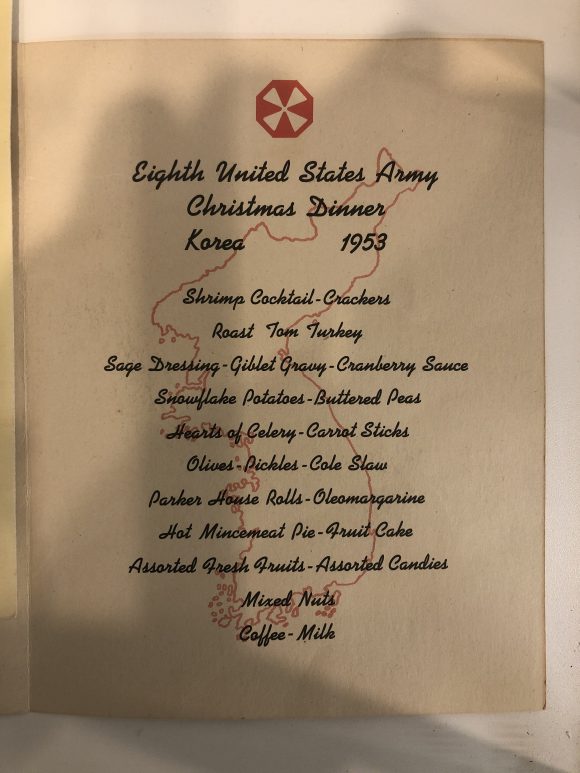 Eighth United States Army
Christmas Dinner
Korea 1953
Shrimp Cocktail-Crackers
Roast Tom Turkey
Sage Dressing-Giblet Gravy-Cranberry Sauce
Snowflake Potatoes-Buttered Peas
Hearts of Celery-Carrot Sticks
Olives-Pickles-Cole Slaw
Parker House Rolls-Oleomargarine
Hot Mincemeat Pie-Fruit Cake
Assorted Fresh Fruits-Assorted Candies
Mixed Nuts
Coffee-Milk